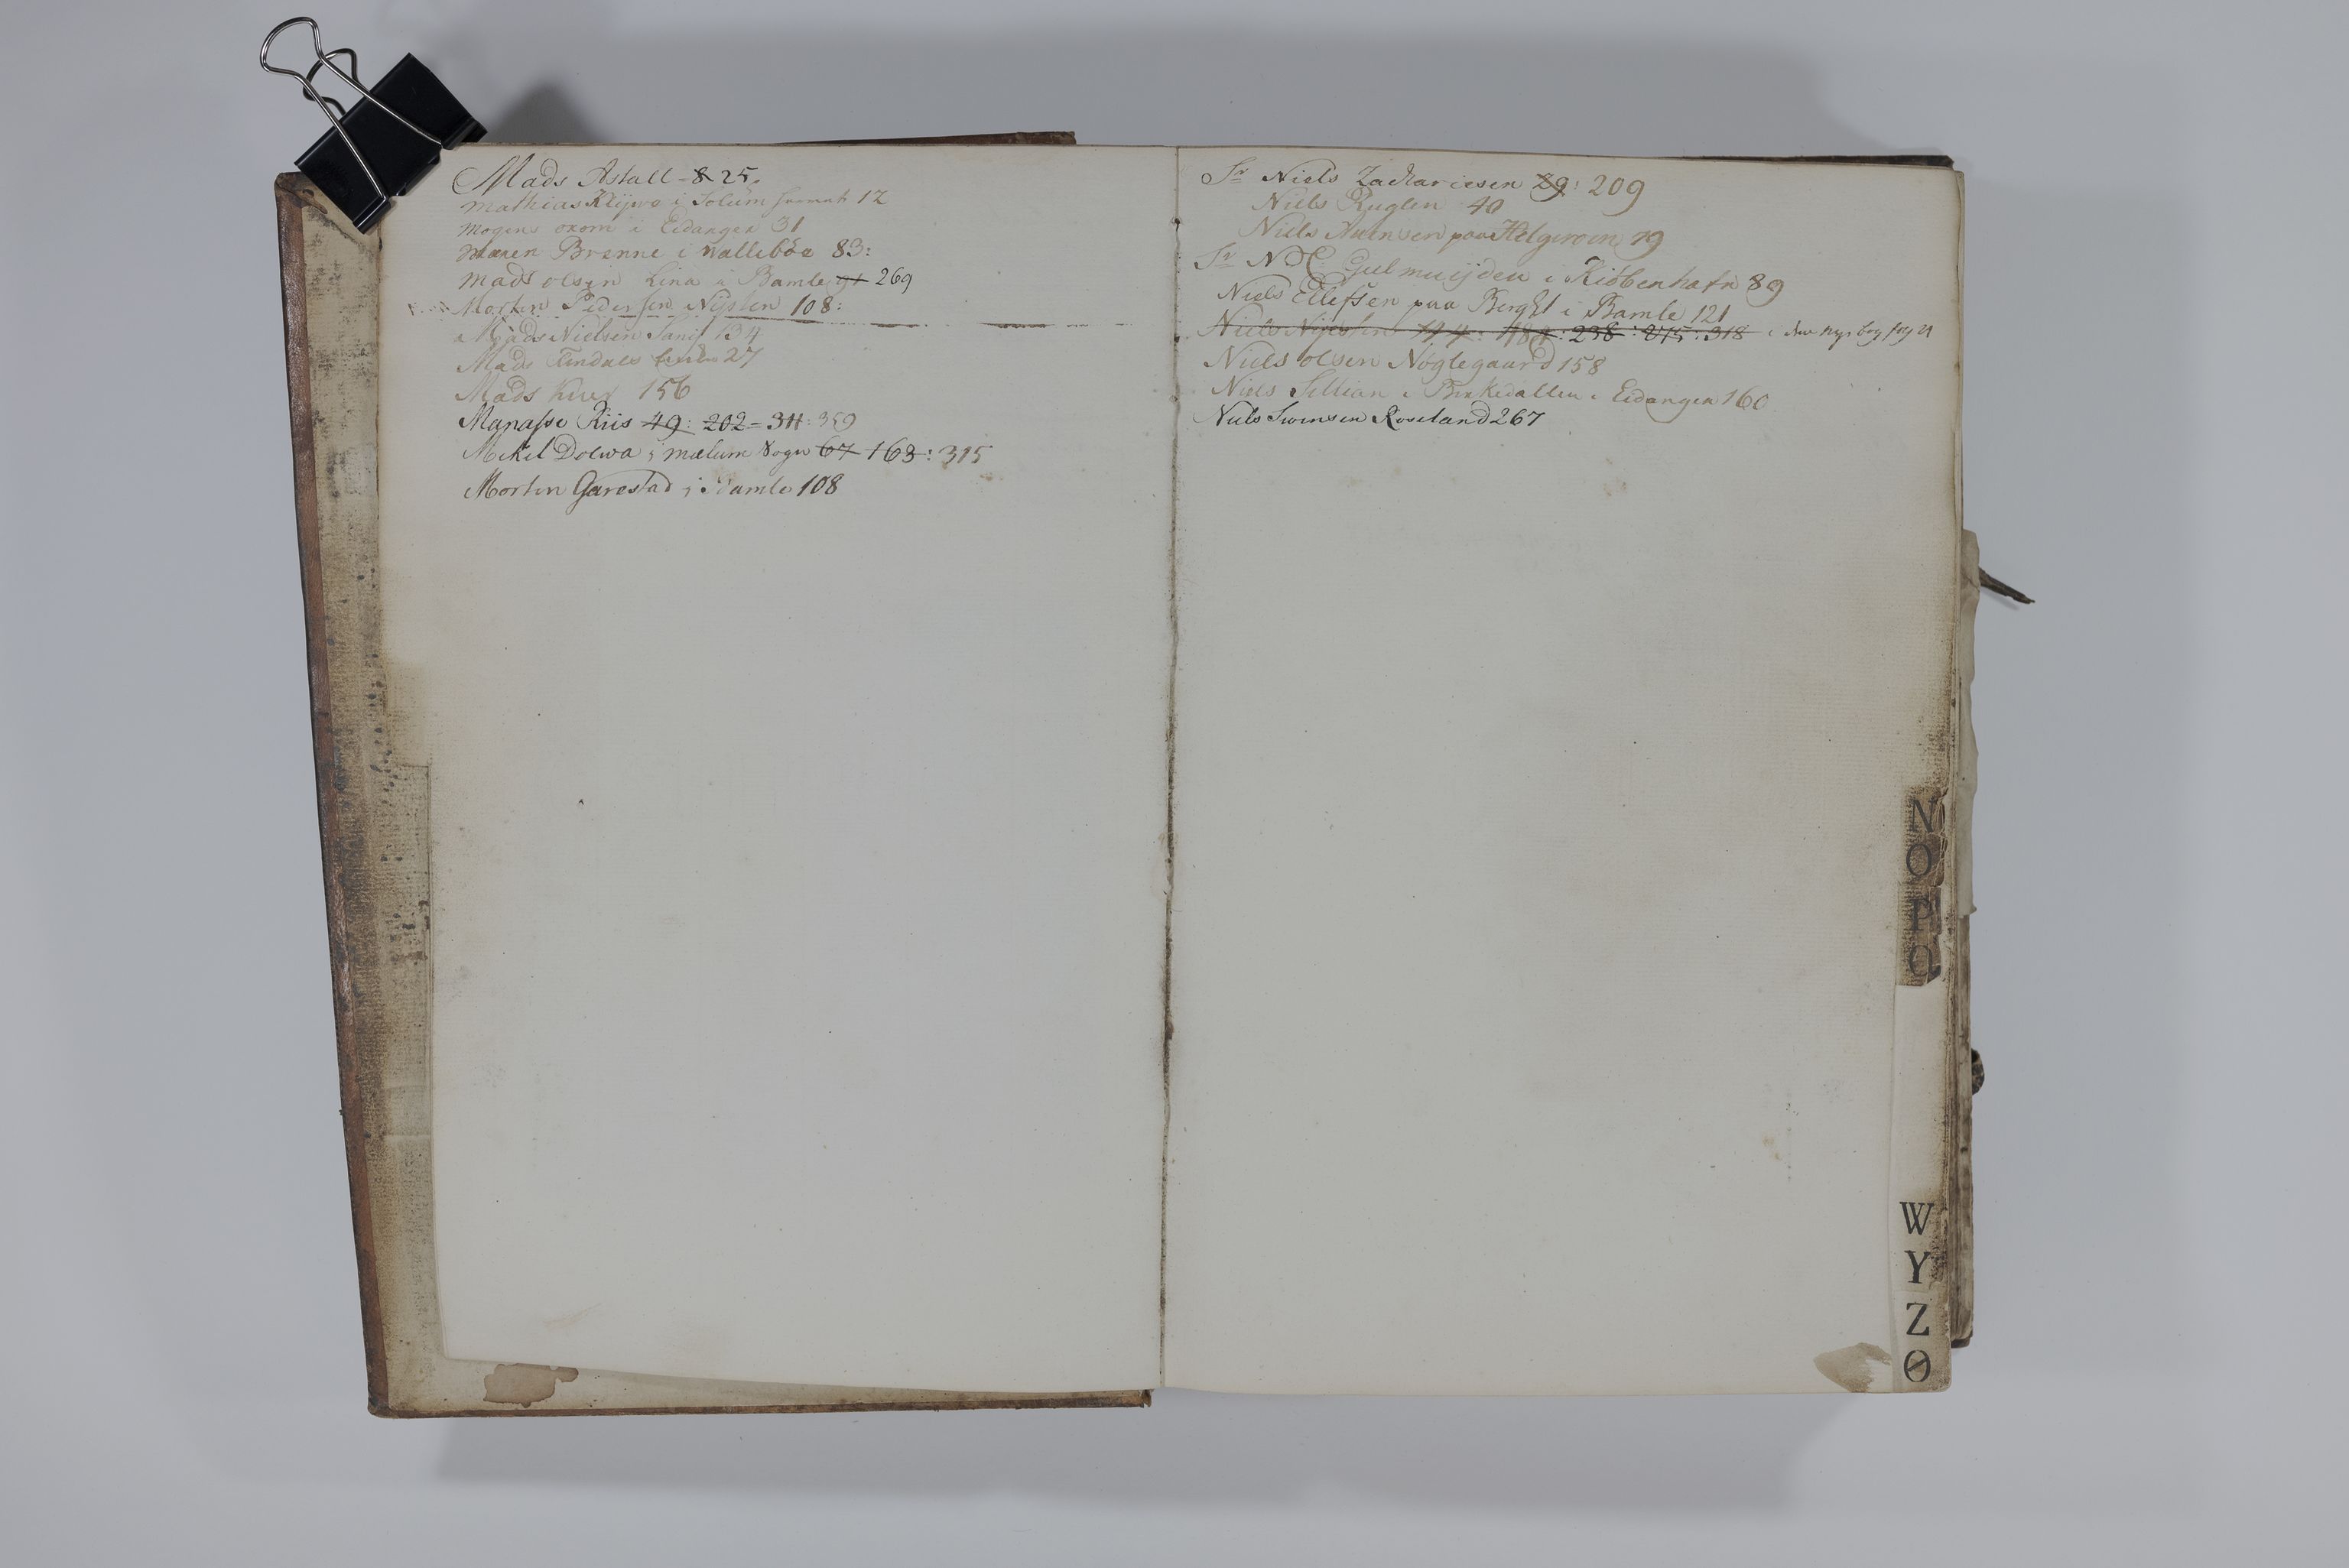 Mads Astall 8 25.
Mathias Klijwe i Solum 12
Mogens oxom i Eidangen 31
Maren Brenne i Wallebøe 83:
Mads olsen Lina i Bamle 91 269
Morten Pedersen Nijsten 108:
Mads Nielsen 134
Mads Tindals 27
Mads 156
Manasse Riis 49: 202 = 311: 359
Mikel Dolwa i mælum Sogn 67 163: 315
Morten Garestad i Bamle 108
Sr Niels Zachariesen 29: 209
Niels Ruglen 40
Niels paa Helgeroen 79
Sr N D C Gulmuijden i Kiøbenhafn 89
Niels Ellefsen paa Berght i Bamle 121
Niels Nijesten 144: 184: 238: 275: 318 i den nye bog
Niels olsen Nøglegaard 158
Niels i Birkedallen i Eidangen 160
Niels Swensen Roseland 267
N
O
P
Q
W
Y
Z
Ø